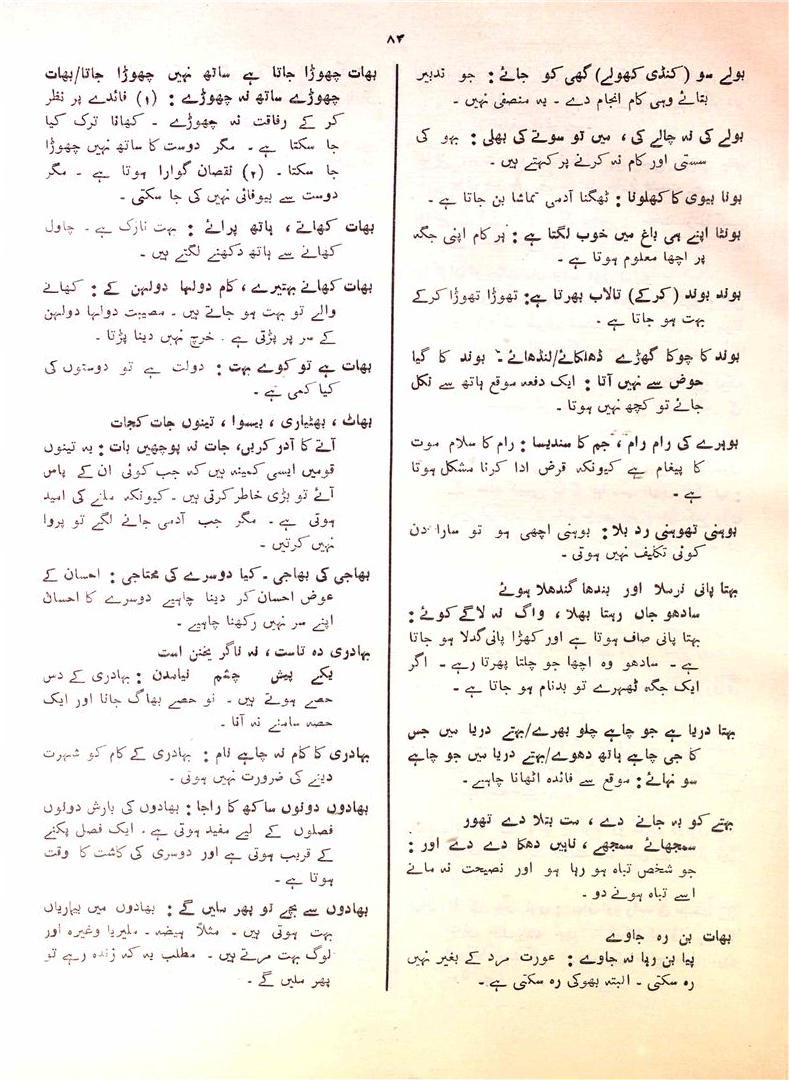 ۸۴
بولے سو (کنڈی کھولے) گھی کو جائے : جو تدبیر
بتائے وہی کام انجام دے ۔ یہ منصفی نہیں ۔
بولے کی نہ چالے کی ، میں تو سوتے کی بھلی : بہو کی
سستی اور کام نہ کرنے پر کہتے ہیں ۔
بونا بیوی کا کھلونا : ٹھگنا آدمی تماشا بن جاتا ہے ۔
بونٹا اپنے ہی باغ میں خوب لگتا ہے : ہر کام اپنی جگہ
پر اچھا معلوم ہوتا ہے ۔
بوند بوند (کرکے) تالاب بھرتا ہے : تھوڑا تھوڑا کرکے
بہت ہو جاتا ہے ۔
بوند کا چوکا گھڑے ڈھلکائے/لنڈھائے ۔ بوند کا گیا
حوض سے نہیں آتا : ایک دفعہ موقع ہاتھ سے نکل
جائے تو کچھ نہیں ہوتا ۔
بوہرے کی رام رام ، جم کا سندیسا : رام کا سلام موت
کا پیغام ہے کیونکہ قرض ادا کرنا مشکل ہوتا
ہے ۔
بوہنی تھوہنی رد بلا : بوہنی اچھی ہو تو سارا دن
کوئی تکلیف نہیں ہوتی ۔
بہتا پانی نرملا اور بندھا گندھلا ہوئے
سادھو جاں رہتا بھلا ، واگ نہ لاگے کوئے :
بہتا پانی صاف ہوتا ہے اور کھڑا پانی گدلا ہو جاتا
ہے ۔ سادھو وہ اچھا جو چلتا پھرتا رہے ۔ اگر
ایک جگہ ٹھہرے تو بدنام ہو جاتا ہے ۔
بہتا دریا ہے جو چاہے چلو بھرے/بہتے دریا میں جس
کا جی چاہے ہاتھ دھوے/بہتے دریا میں جو چاہے
سو نہائے : موقع سے فائدہ اٹھانا چاہیے ۔
بہتے کو بہ جانے دے ، مت بتلا دے تھور
سمجھائے سمجھے ، ناہیں دھکا دے دے اور :
جو شخص تباہ ہو رہا ہو اور نصیحت نہ مانے
اسے تباہ ہونے دو ۔
بھات بن رہ جاوے
پیا بن رہا نہ جاوے : عورت مرد کے بغیر نہیں
رہ سکتی ۔ البتہ بھوکی رہ سکتی ہے ۔
بھات چھوڑا جاتا ہے ساتھ نہیں چھوڑا جاتا/بھات
چھوڑے ساتھ نہ چھوڑے : (۱) فائدے پر نظر
کر کے رفاقت نہ چھوڑے ۔ کھانا ترک کیا
جا سکتا ہے ۔ مگر دوست کا ساتھ نہیں چھوڑا
جا سکتا ۔ (۲) نقصان گوارا ہوتا ہے ۔ مگر
دوست سے بیوفائی نہیں کی جا سکتی ۔
بھات کھاتے ، ہاتھ پرائے : بہت نازک ہے ۔ چاول
کھانے سے ہاتھ دکھنے لگتے ہیں ۔
بھات کھانے بہتیرے ، کام دولہا دولہن کے : کھانے
والے تو بہت ہو جاتے ہیں ۔ مصیبت دولہا دولہن
کے سر پر پڑتی ہے ۔ خرچ نہیں دینا پڑتا ۔
بھات ہے تو کوے بہت : دولت ہے تو دوستوں کی
کیا کمی ہے ۔
بھاٹ ، بھٹیاری ، بیسوا ، تینوں جات کجات
آتے کا آدر کریں ، جات نہ پوچھیں بات : یہ تینوں
قومیں ایسی کمینہ ہیں کہ جب کوئی ان کے پاس
آئے تو بڑی خاطر کرتی ہیں ۔ کیونکہ ملنے کی امید
ہوتی ہے ۔ مگر جب آدمی جانے لگے تو پروا
نہیں کرتیں ۔
بھاجی کی بھاجی ۔ کیا دوسرے کی محتاجی : احسان کے
عوض احسان کر دینا چاہیے دوسرے کا احسان
اپنے سر نہیں رکھنا چاہیے ۔
بہادری دہ تاست ، نہ تاگر یختن است
یکے پیش چشم نیامدن : بہادری کے دس
حصے ہوتے ہیں ۔ نو حصے بھاگ جانا اور ایک
حصہ سامنے نہ آنا ۔
بہادری کا کام نہ چاہے نام : بہادری کے کام کو شہرت
دینے کی ضرورت نہیں ہوتی ۔
بھادوں دونوں ساکھ کا راجا : بھادوں کی بارش دونوں
فصلوں کے لیے مفید ہوتی ہے ۔ ایک فصل پکنے
کے قریب ہوتی ہے اور دوسری کی کاشت کا وقت
ہوتا ہے ۔
بھادوں سے بچے تو پھر ملیں گے : بھادوں میں بیماریاں
بہت ہوتی ہیں ۔ مثلاً ہیضہ ۔ ملیریا وغیرہ اور
لوگ بہت مرتے ہیں ۔ مطلب یہ کہ زندہ رہے تو
پھر ملیں گے ۔